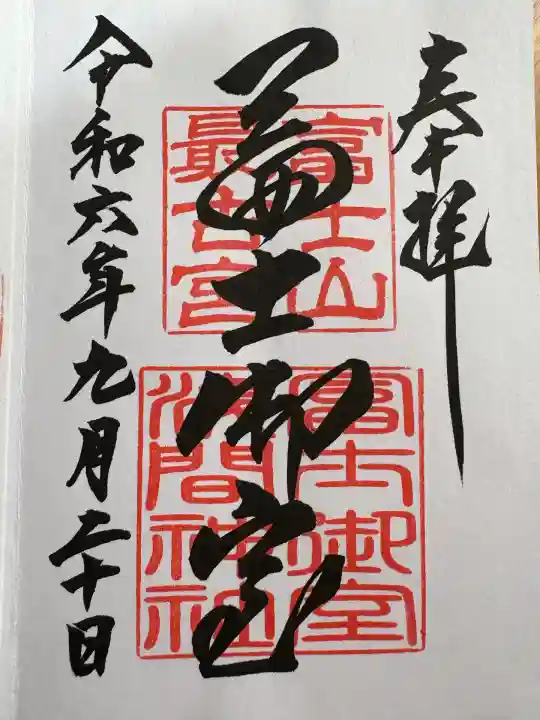 奉拝
富士山
最古宮
冨士御室
冨士御室
浅間神社
令和六年九月二十日